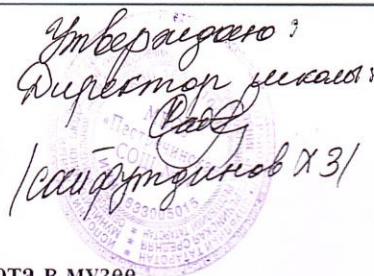 Утверждаю:
Директор школы:
/Сайфутдинов ХЗ/
ота в музее